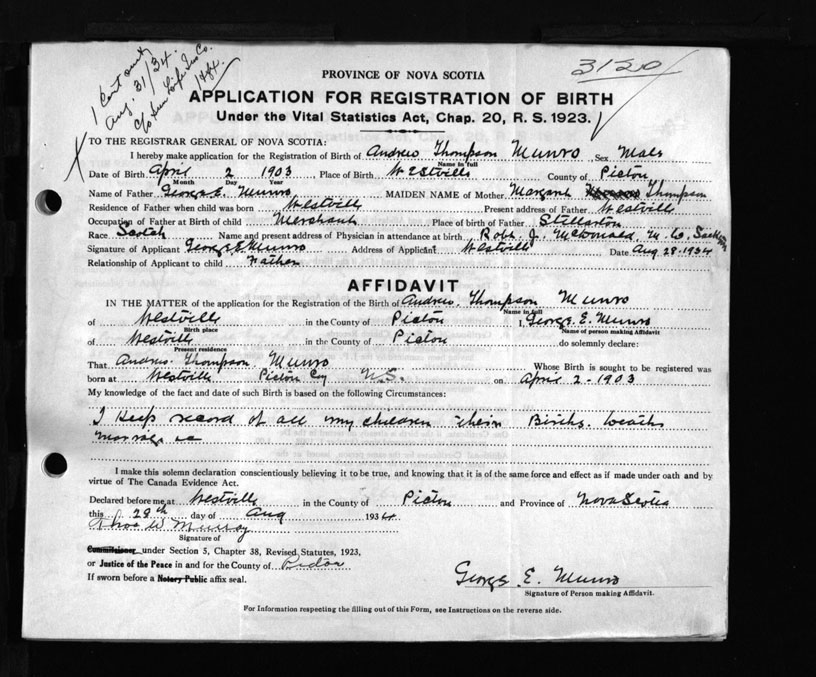 3120
1 Cert only
Aug. 31/34.
c/o Sun Life Ins Co.
Hfx.
PROVINCE OF NOVA SCOTIA
APPLICATION FOR REGISTRATION OF BIRTH
Under the Vital Statistics Act, Chap. 20, R. S. 1923.
TO THE REGISTRAR GENERAL OF NOVA SCOTIA:
I hereby make application for the Registration of Birth of Andrew Thompson Munro Sex Male
Name in full
Date of Birth April 2 1903 Place of Birth Westville County of Pictou
Month Day Year
Name of Father George E. Munro MAIDEN NAME of Mother Margaret Thompson
Residence of Father when child was born Westville Present address of Father Westville
Occupation of Father at Birth of child Merchant Place of birth of Father Stellarton
Race Scotch Name and present address of Physician in attendance at birth Robt. J. McDonald, M.D.
Signature of Applicant George E Munro Address of Applicant Westville Date Aug 28 1934
Relationship of Applicant to child Father
AFFIDAVIT
IN THE MATTER of the application for the Registration of the Birth of Andrew Thompson Munro
Name in full
of Westville in the County of Pictou I, George E. Munro
Birth place Name of person making Affidavit
of Westville in the County of Pictou do solemnly declare:
Present residence
That Andrew Thompson Munro Whose Birth is sought to be registered was
born at Westville Pictou Coy N.S. on April 2 - 1903
My knowledge of the fact and date of such Birth is based on the following Circumstances:
I Keep record of all my children their Births. Deaths
Marriage &c
I make this solemn declaration conscientiously believing it to be true, and knowing that it is of the same force and effect as if made under oath and by
virtue of The Canada Evidence Act.
Declared before me at Westville in the County of Pictou and Province of Nova Scotia
this 28th day of Aug 1934
Thos W Murray
Signature of
Commissioner under Section 5, Chapter 38, Revised Statutes, 1923,
or Justice of the Peace in and for the County of Pictou
If sworn before a Notary Public affix seal.
George E. Munro
Signature of Person making Affidavit.
For Information respecting the filling out of this Form, see Instructions on the reverse side.